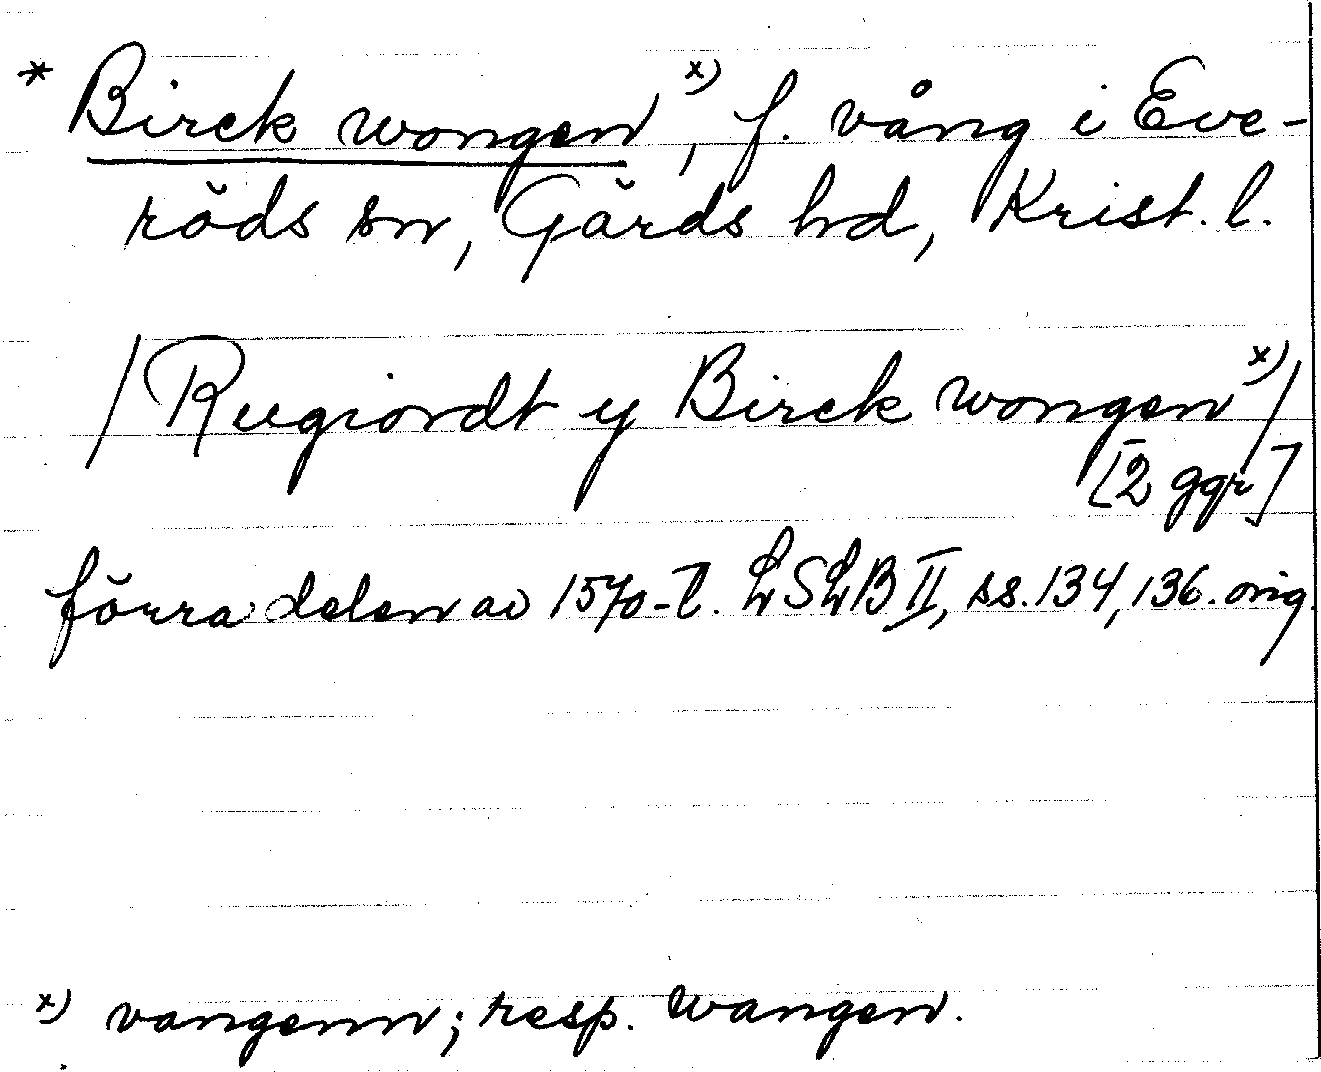 * Birck wongen x), f. vång i Eve-
röds sn, Gärds hd, Krist. l.
/Rugiordt y Birck wongen x)/
[2 ggr]
förra delen av 1570-t. LSLB II, ss. 134, 136. orig.
x) vangenn; resp. wangen.